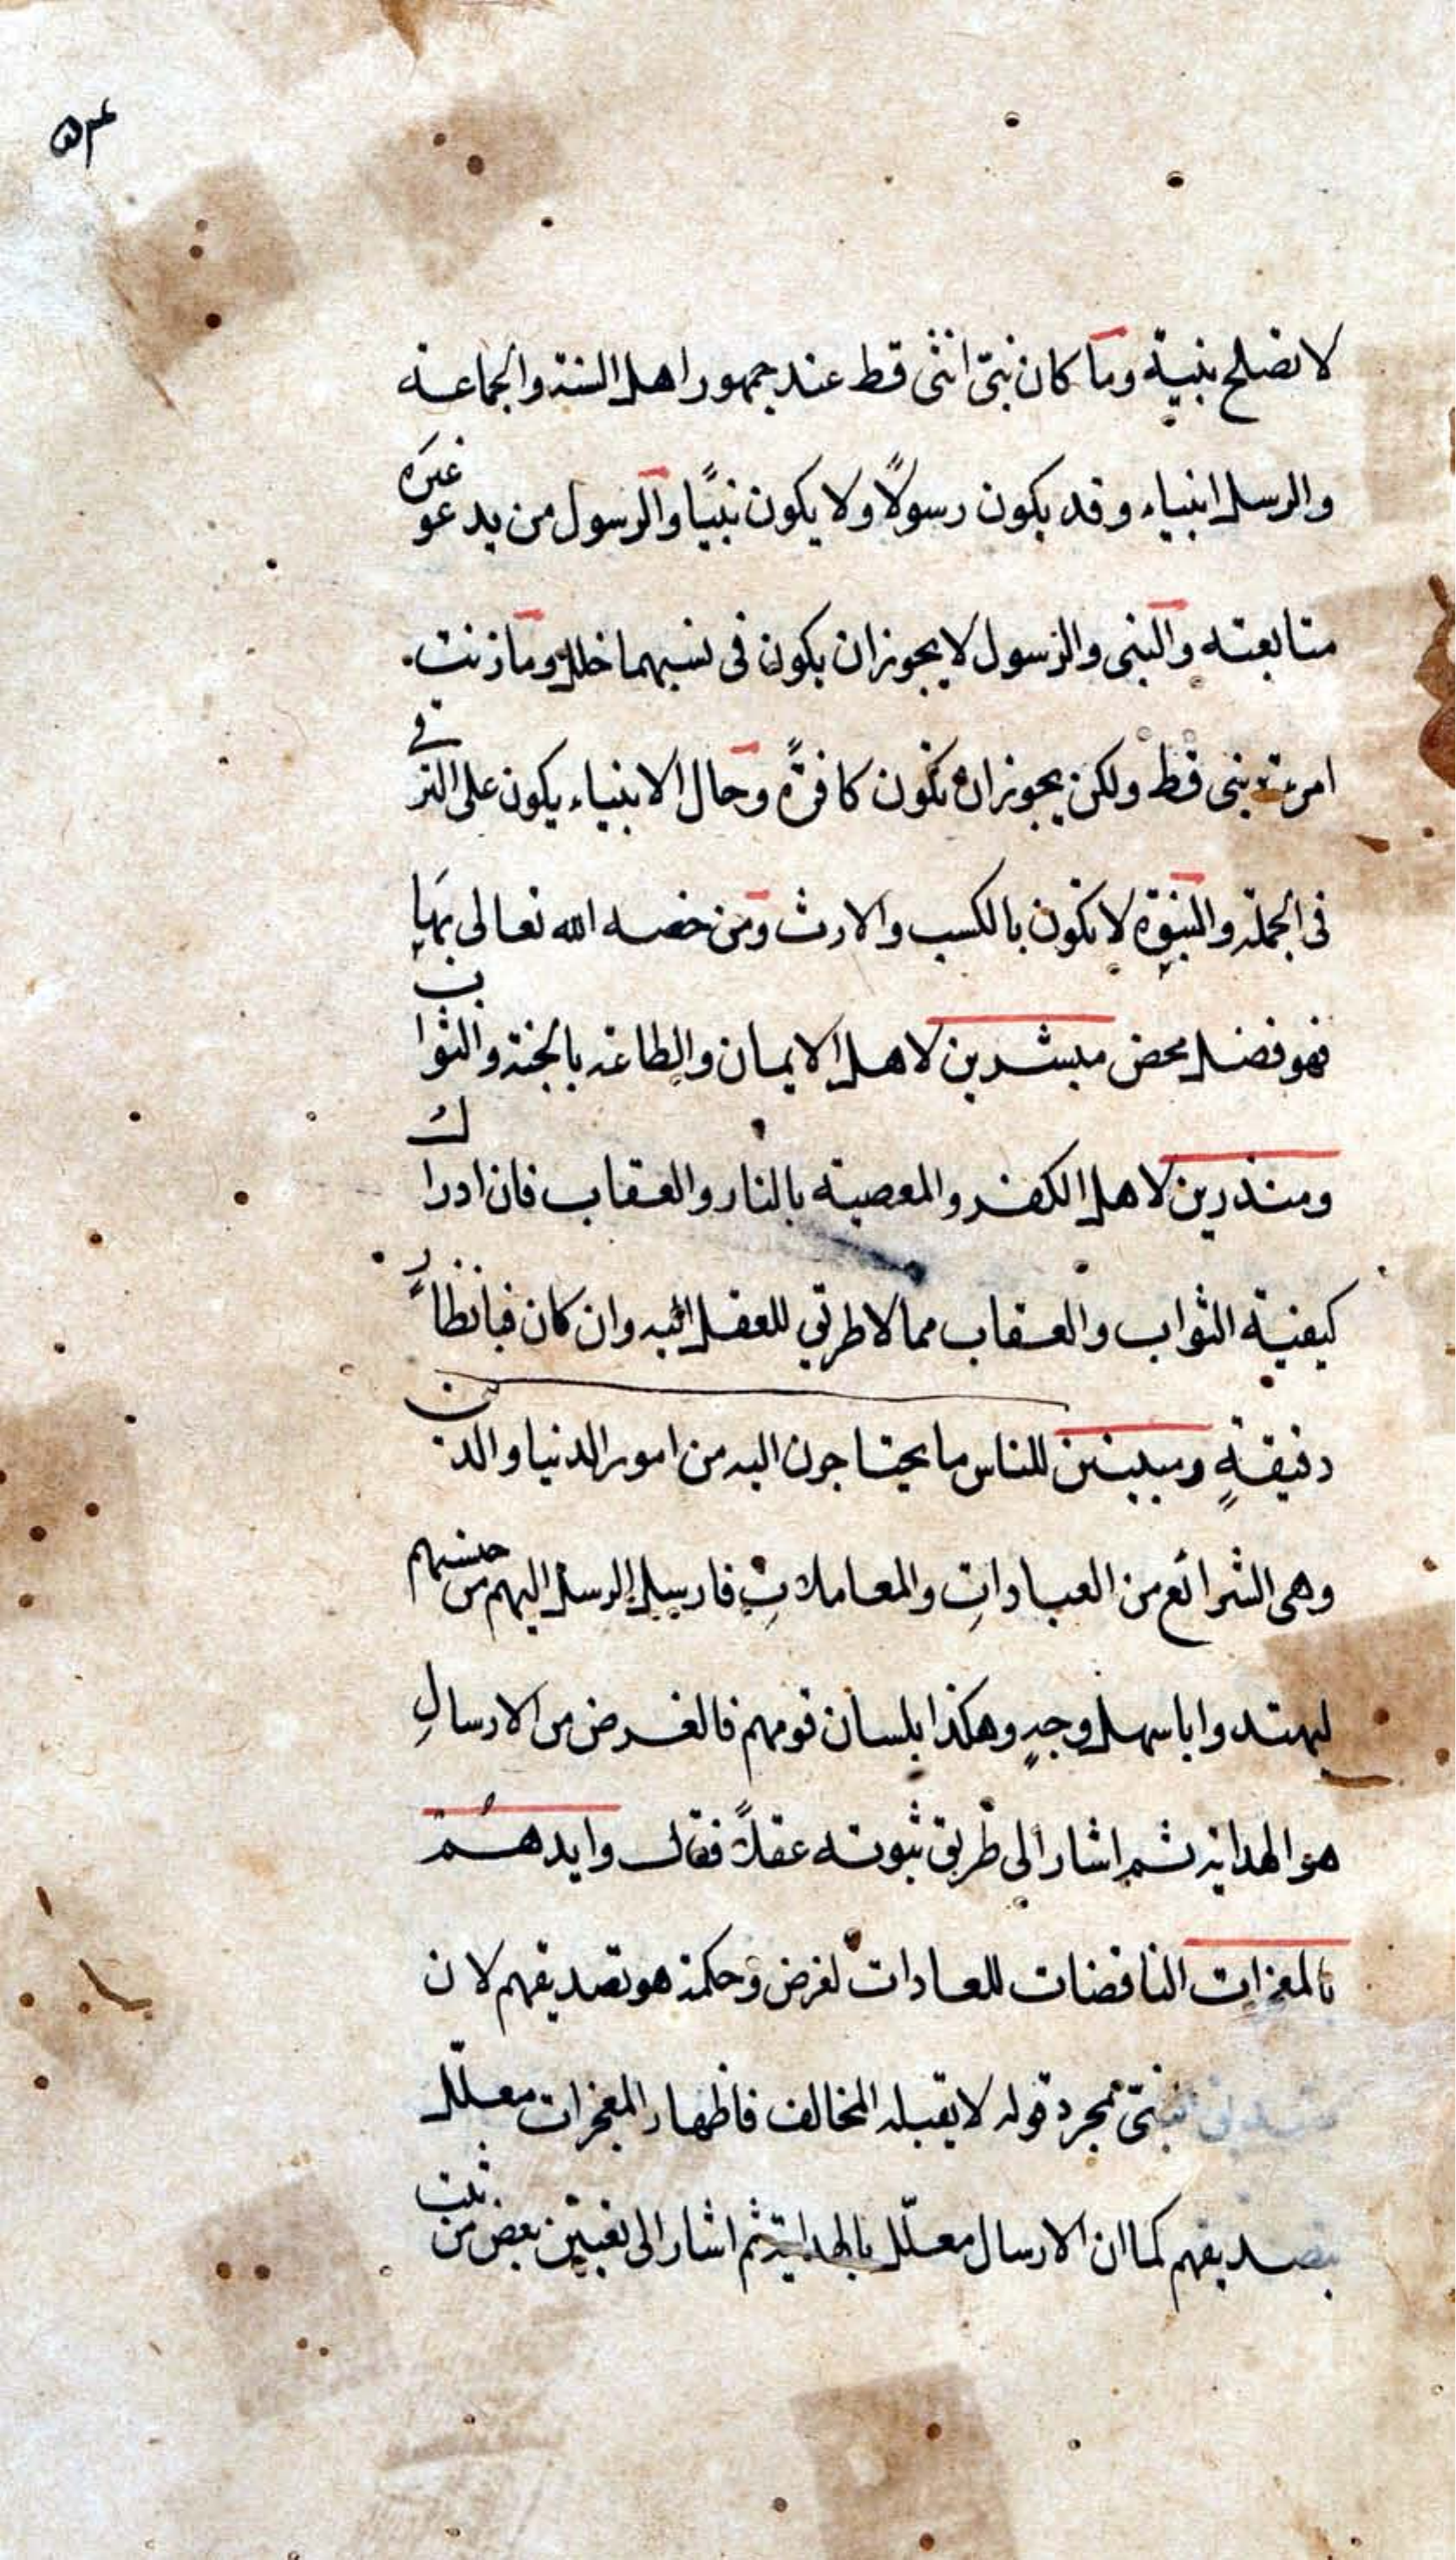 لا تصلح نبية وما كان نبىّ انثى قط عند جمهور اهل السنة والجماعة
والرسل انبياء وقد يكون رسولًا ولا يكون نبيًا والرسول من يدعو غيره
متابعته والنبى والرسول لا يجوز ان يكون فى نسبهما خلل وما زنت
امرءة نبى قط ولكن يجوز ان تكون كافرةً وحال الانبياء يكون على الترقى
فى الجملة والنبوّة لا تكون بالكسب والارث ومن خصه الله تعالى بها
فهو فضل محض مبشرين لاهل الايمان والطاعة بالجنة والثواب
ومنذرين لاهل الكفر والمعصية بالنار والعقاب فان ادراك
كيفية الثواب والعقاب مما لا طريق للعقل اليه وان كان فبانظار
دقيقةٍ ومبينين للناس ما يحتاجون اليه من امور الدنيا والدين
وهى الشرائع من العباداتِ والمعاملاتِ فارسل الرسل اليهم من جنسهم
ليهتدوا باسهل وجهٍ وهكذا بلسان قومهم فالغرض من الارسالِ
هو الهداية ثم اشار الى طريق ثبوته عقلاً فقال وايدهُم
بالمعجزات الناقضات للعادات لغرض وحكمة هو تصديقهم لان
تصديق النبىّ بمجرد قوله لا يقبله المخالف فاظهار المعجزات معلّل
بتصديقهم كما ان الارسال معلّل بالهداية ثم اشار الى تعيين بعض من ثبت